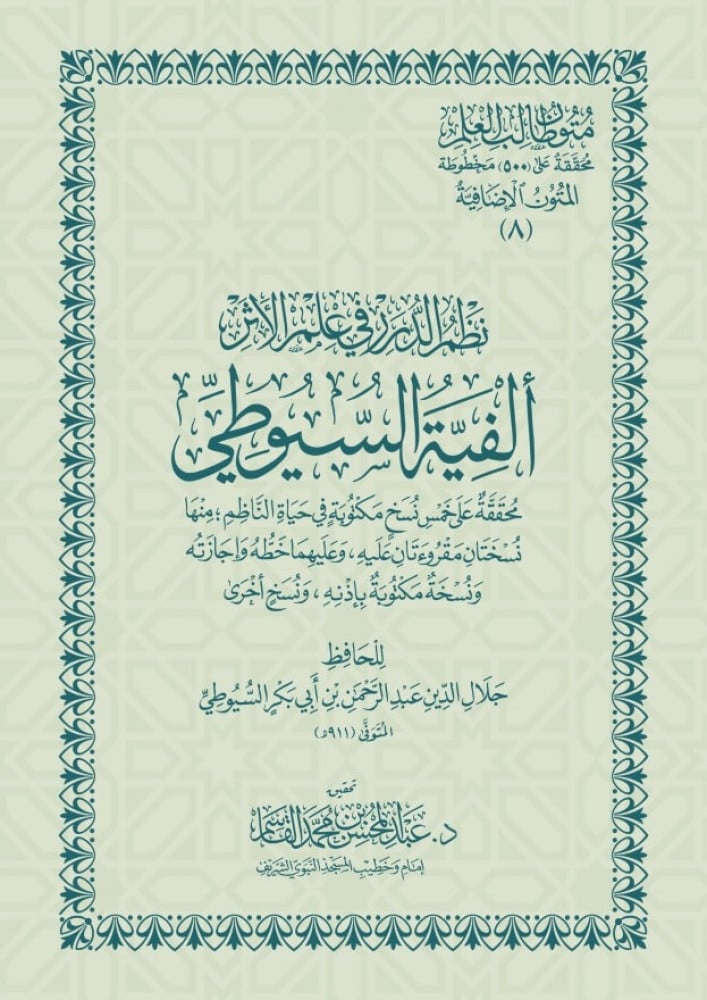 مُتُونُ طَالِبِ الْعِلْمِ
مُحَقَّقَةٌ عَلَى (٥٠٠) مَخْطُوطَة
المُتُونُ الْإِضَافِيَّةُ
(٨)
نَظْمُ الدُّرَرِ فِي عِلْمِ الْأَثَرِ
أَلْفِيَّةُ السُّيُوطِيِّ
مُحَقَّقَةٌ عَلَى خَمْسِ نُسَخٍ مَكْتُوبَةٍ فِي حَيَاةِ النَّاظِمِ؛ مِنْهَا
نُسْخَتَانِ مَقْرُوءَتَانِ عَلَيْهِ، وَعَلَيْهِمَا خَطُّهُ وَإِجَازَتُه
وَنُسْخَةٌ مَكْتُوبَةٌ بِإِذْنِهِ، وَنُسَخٍ أُخْرَى
لِلْحَافِظِ
جَلَالِ الدِّينِ عَبْدِ الرَّحْمَنِ بْنِ أَبِي بَكْرٍ السُّيُوطِيِّ
المُتَوَفَّى (٩١١هـ)
تحقيق
د. عَبْدُ الْمُحْسِنِ بْنُ مُحَمَّدٍ الْقَاسِمُ
إِمَامِ وَخَطِيبِ الْمَسْجِدِ النَّبَوِيِّ الشَّرِيفِ